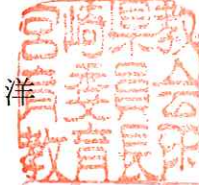 宮崎県教
育委員会
教育長印
洋